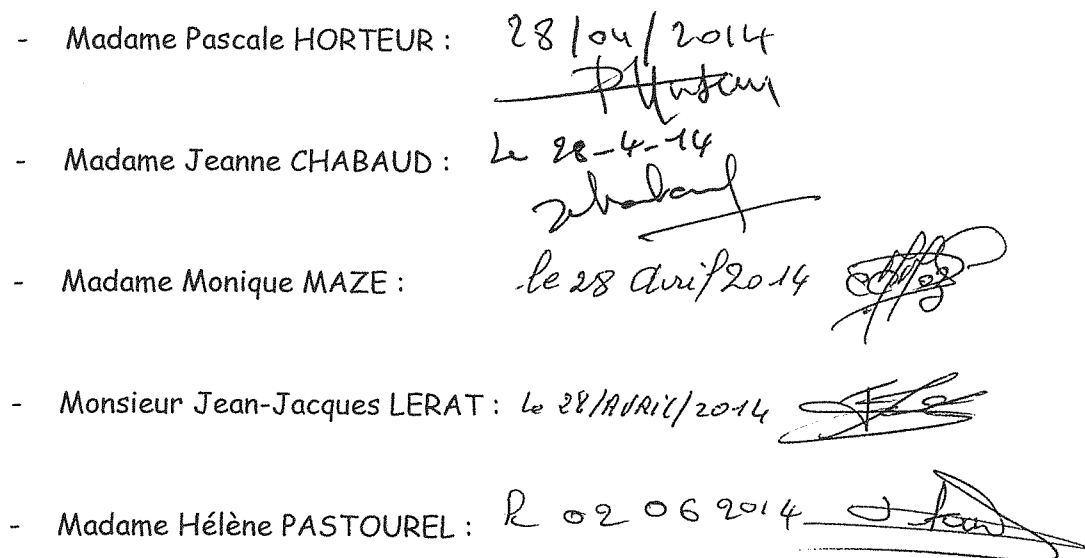 - Madame Pascale HORTEUR : 28/04/2014
- Madame Jeanne CHABAUD : Le 28-4-14
- Madame Monique MAZE : le 28 Avril 2014
- Monsieur Jean-Jacques LERAT : Le 28/AVRIL/2014
- Madame Hélène PASTOUREL : le 02 06 2014